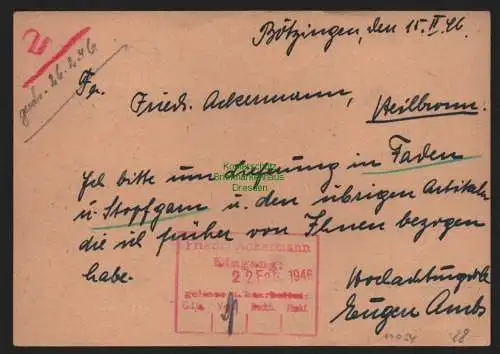 Bötzingen, den 15. II 46.
2
gesch. 26.2.46
Fa.
Friedr. Ackermann, Heilbronn.
Ich bitte um Lieferung in Faden
u. Stopfgarn u. den übrigen Artikeln
die ich früher von Ihnen bezogen
habe.
Hochachtungsvoll
Eugen Ambs
Friedr. Ackermann
Eingang:
22 Feb. 1946
gelesen u. bearbeitet:
Buch.
Briefmarkenhaus
Dresden
28